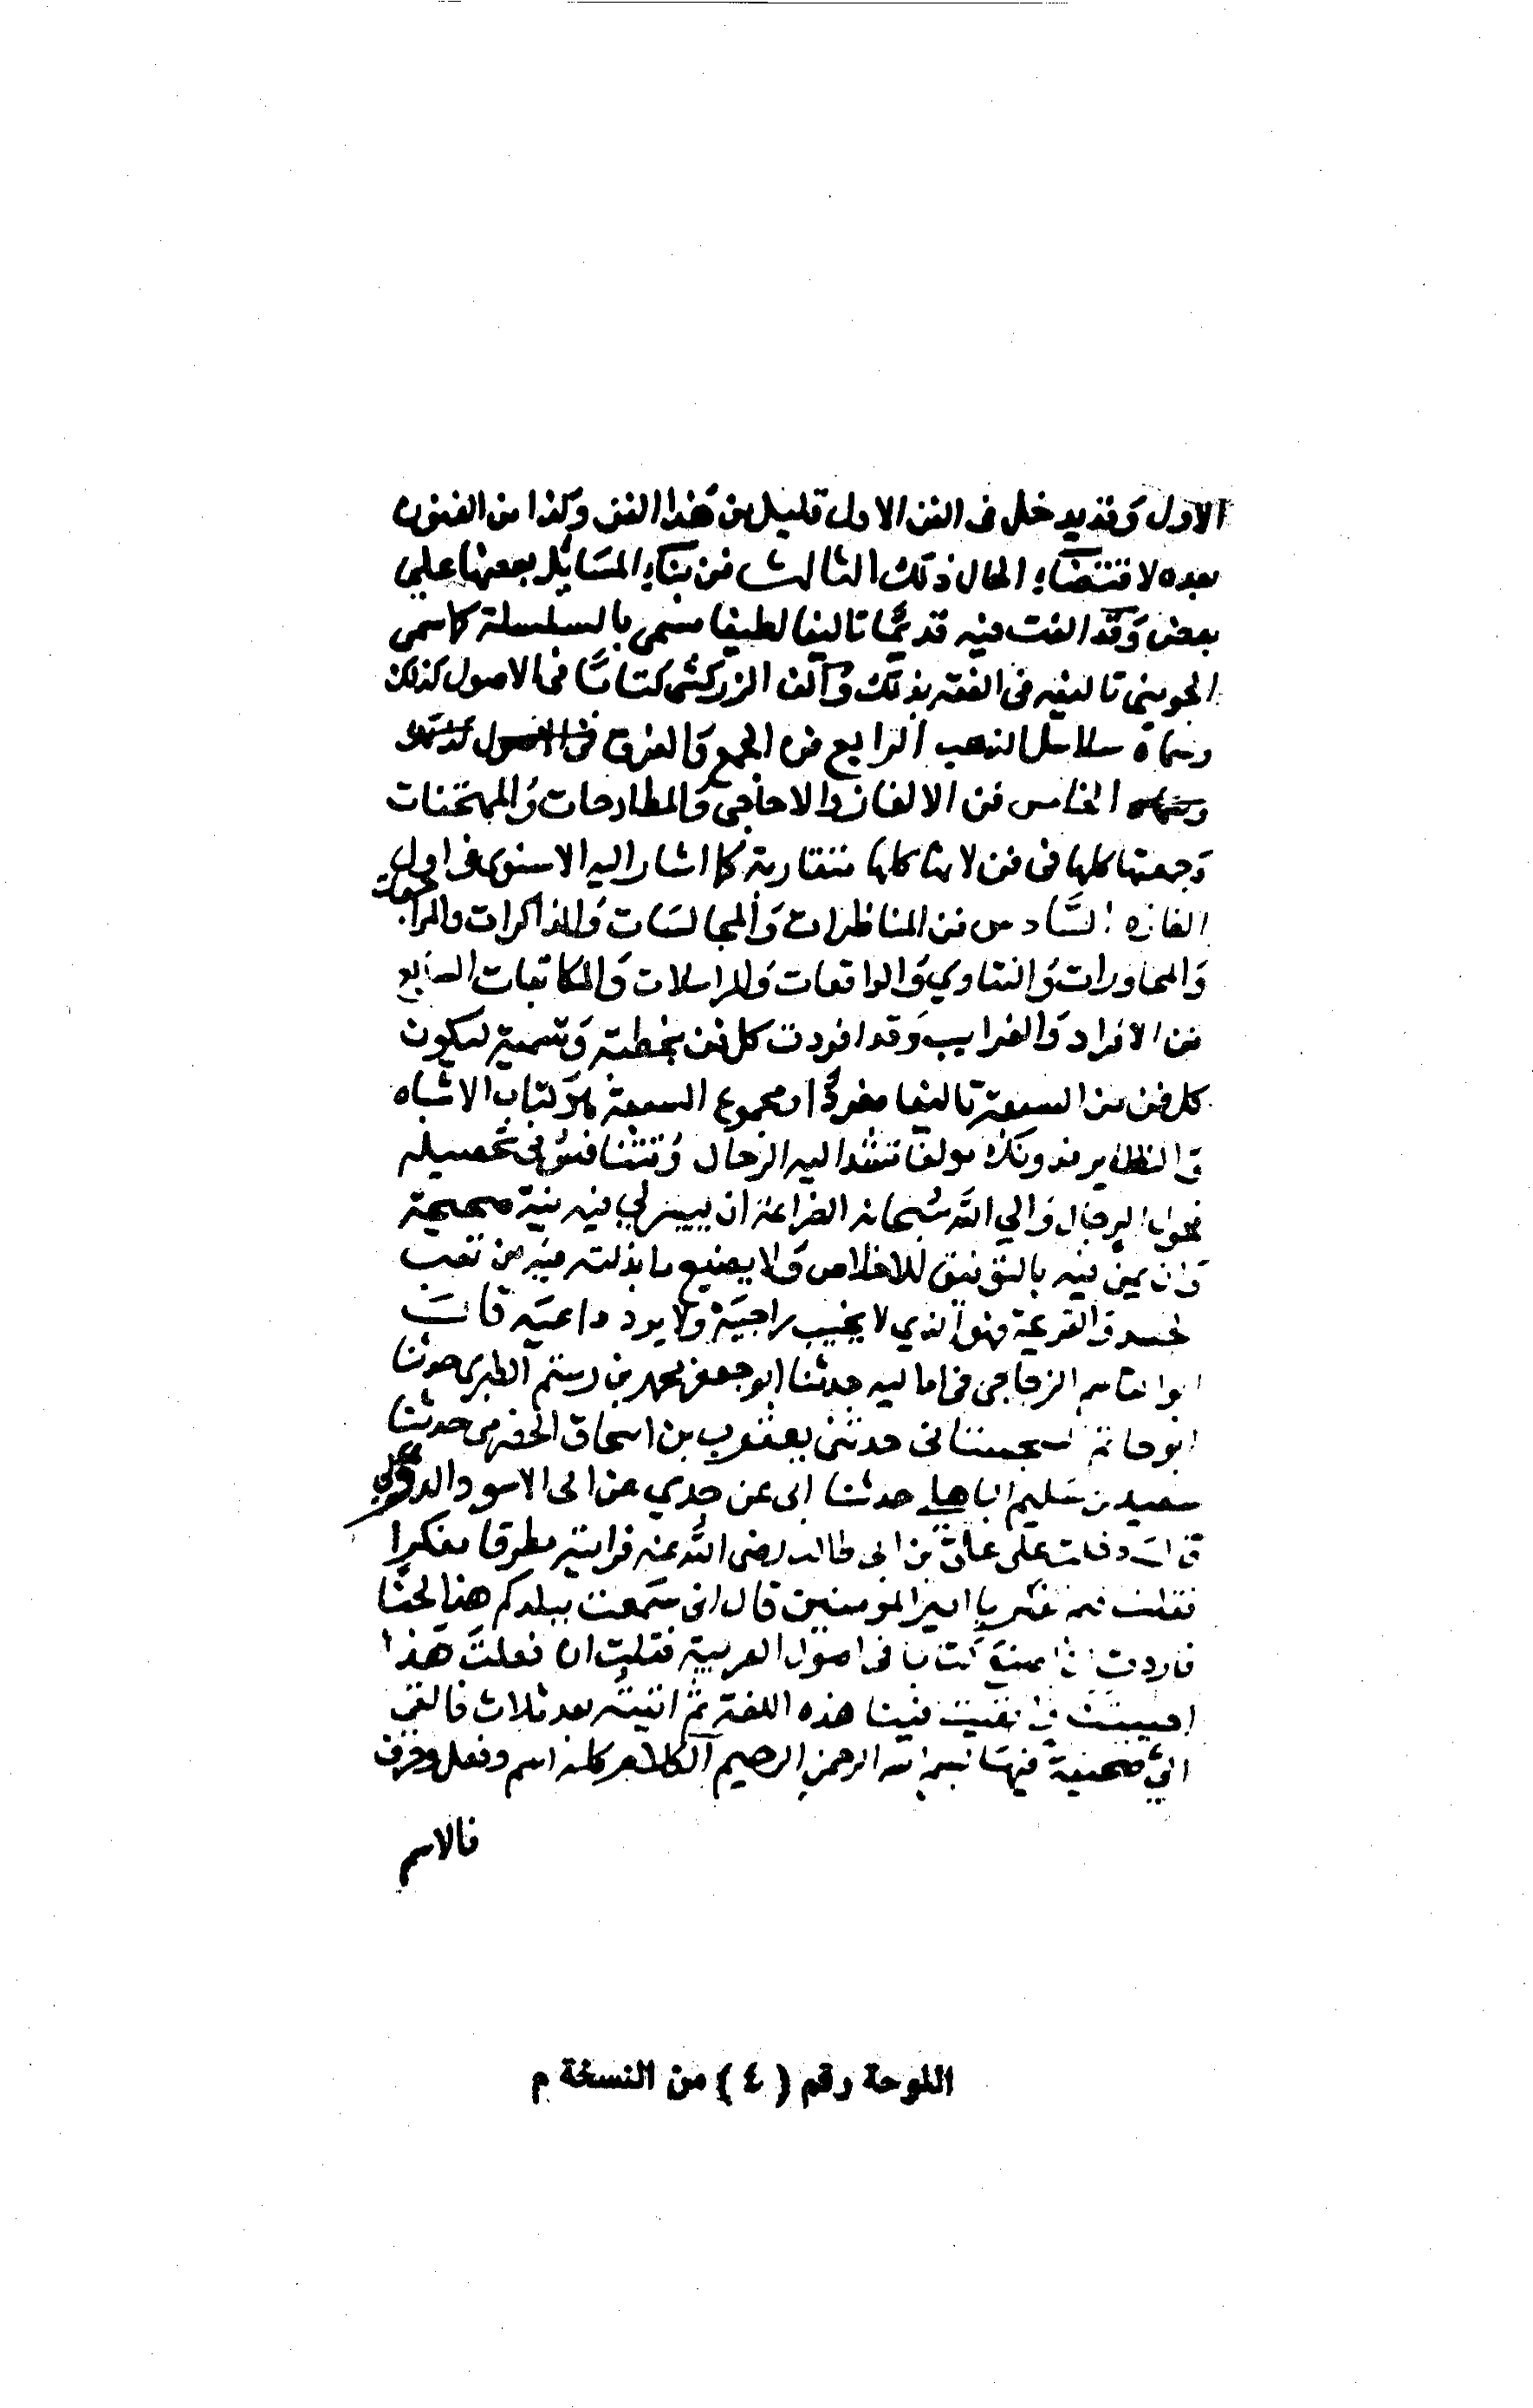 الاول وَقد يدخل فى الفن الاول قليل من هَذا الفن وَكذا من الفنون
بعده لاقتضَاءِ الحال ذلك الثالث فن بنَاءِ المسَائل بعضها علي
بعض وَقد الفت فيه قديمًا تاليفا لطيفا مسمى بالسلسلة كما سمى
الجوينى تاليفه فى الفقه بذلك وَالف الزركشى كتابًا فى الاصول كذلك
وسماه سلاسل الذهب الرابع فن الجمع وَالفرق
الخامس فن الالغاز والاحاجى وَالمطارحات وَالممتحنات
وَجمعتها كلها فى فن لانها كلها متقاربة كما اشار اليه الاسنوى فى اول
الغازه السَّادس فن المناظرات وَالمجالسَات وَالمذاكرات والمراجعات
وَالمحاورات وَالفتاوي وَالواقعات وَالمراسلات وَالمكاتبات السابع
فن الافراد وَالغرايب وَقد افردت كل فن بخطبة وَتسمية ليكون
كل فن من السبعة تاليفا مفردًا ومجموع السبعة هوَ كتاب الاشباه
وَالنظاير فدونك مولفا تشد اليه الرحال وَتتنافس فى تحصيله
فحول الرجال وَالي الله سُبحانه الضراعة ان ييسر لي فيه نية صحيحة
وَان يمن فيه بالتوفيق للاخلاص وَلا يضيع ما بذلته فيه من تعب
الجسد وَالقريحة فهوَ الذي لا يخيب راجيَه وَلا يرد داعيَه قالَ
ابو القاسم الزجاجى فى اماليه حدثنا ابو جعفر محمد بن رستم الطبرى حدثنا
ابو حاتم السجستانى حدثنى يعقوب بن اسحاق الحضرمى حدثنا
سعيد بن سَليم الباهلي حدثنا ابى عن جدي عن ابى الاسود الدولي
قالَ دخلت على علىّ بن ابى طالب رضى الله عنه فرايته مطرقا مفكرا
فقلت فيم تفكر يا امير المومنين قال انى سَمعت ببلدكم هذا لحنًا
فاردت ان اصنع كتابا فى اصول العربية فقلت ان فعلتَ هَذا
احييتنا وبقيت فينا هذه اللغة ثم اتيته بعد ثلاث فالقى
الىّ صحيفة فيهَا بسم الله الرحمن الرحيم الكلام كله اسم وفعل وحرف
فالاسم
اللوحة رقم ( ٤ ) من النسخة م